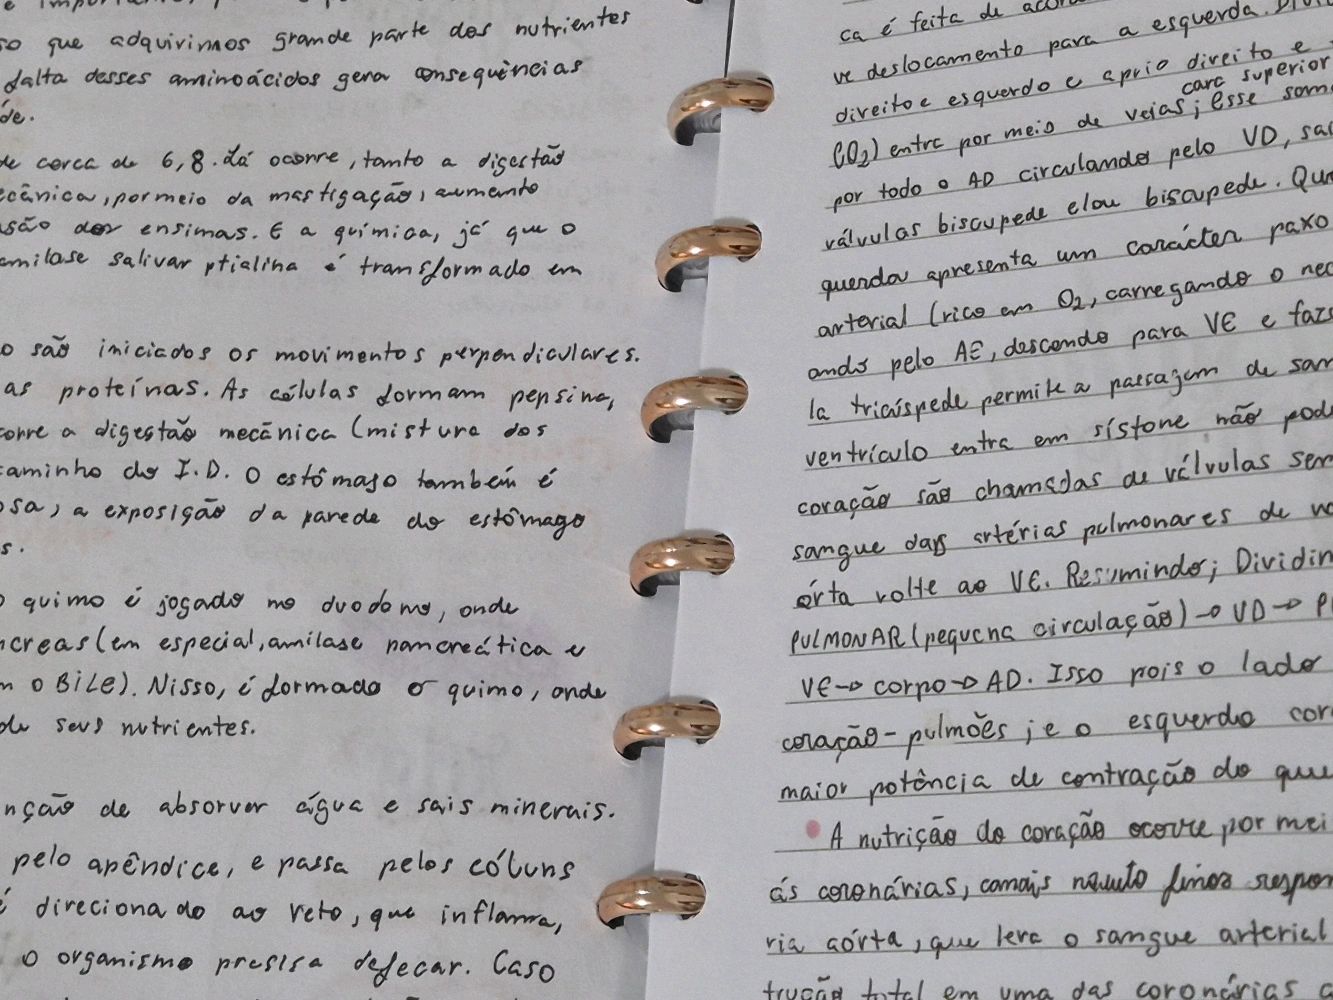 so que adquirimos grande parte dos nutrientes
falta desses aminoácidos gera consequências
de.
de cerca de 6,8. Lá ocorre, tanto a digestão
ecânica, por meio da mastigação, aumento
são dos ensimas. E a química, já que o
amilase salivar ptialina é transformado em
o são iniciados os movimentos perpendiculares.
as proteínas. As células formam pepsina,
corre a digestão mecânica (mistura dos
caminho do I.D. O estômago também é
osa, a exposição da parede do estômago
s.
o quimo é jogado no duodomo, onde
ncreas (em especial, amilase pancreática e
m o BiLe). Nisso, é formado o quimo, onde
de seus nutrientes.
nção de absorver água e sais minerais.
pelo apêndice, e passa pelos cóluns
é direcionado ao reto, que inflama,
o organismo presisa defecar. Caso
ca é feita de
ve deslocamento para a esquerda.
direito e esquerdo e aprio direito e
cava superior
(CO2) entra por meio de veias; Esse
por todo o AD circulando pelo VD,
válvulas biscupede e/ou biscupede.
querda apresenta um carácter
arterial (rico em O2, carregando o
ando pelo AE, descendo para VE e
la tricúspede permite a passagem de
ventrículo entra em sístone não
coração são chamadas de válvulas
sangue das artérias pulmonares de
órta volte ao VE. Resumindo; Dividin
PULMONAR (pequena circulação) → VD →
VE → corpo → AD. Isso pois o lado
coração - pulmões; e o esquerdo
maior potência de contração do que
• A nutrição do coração ocorre por mei
ás coronárias, canais finos
ria aórta, que leva o sangue arterial
total em uma das coronárias